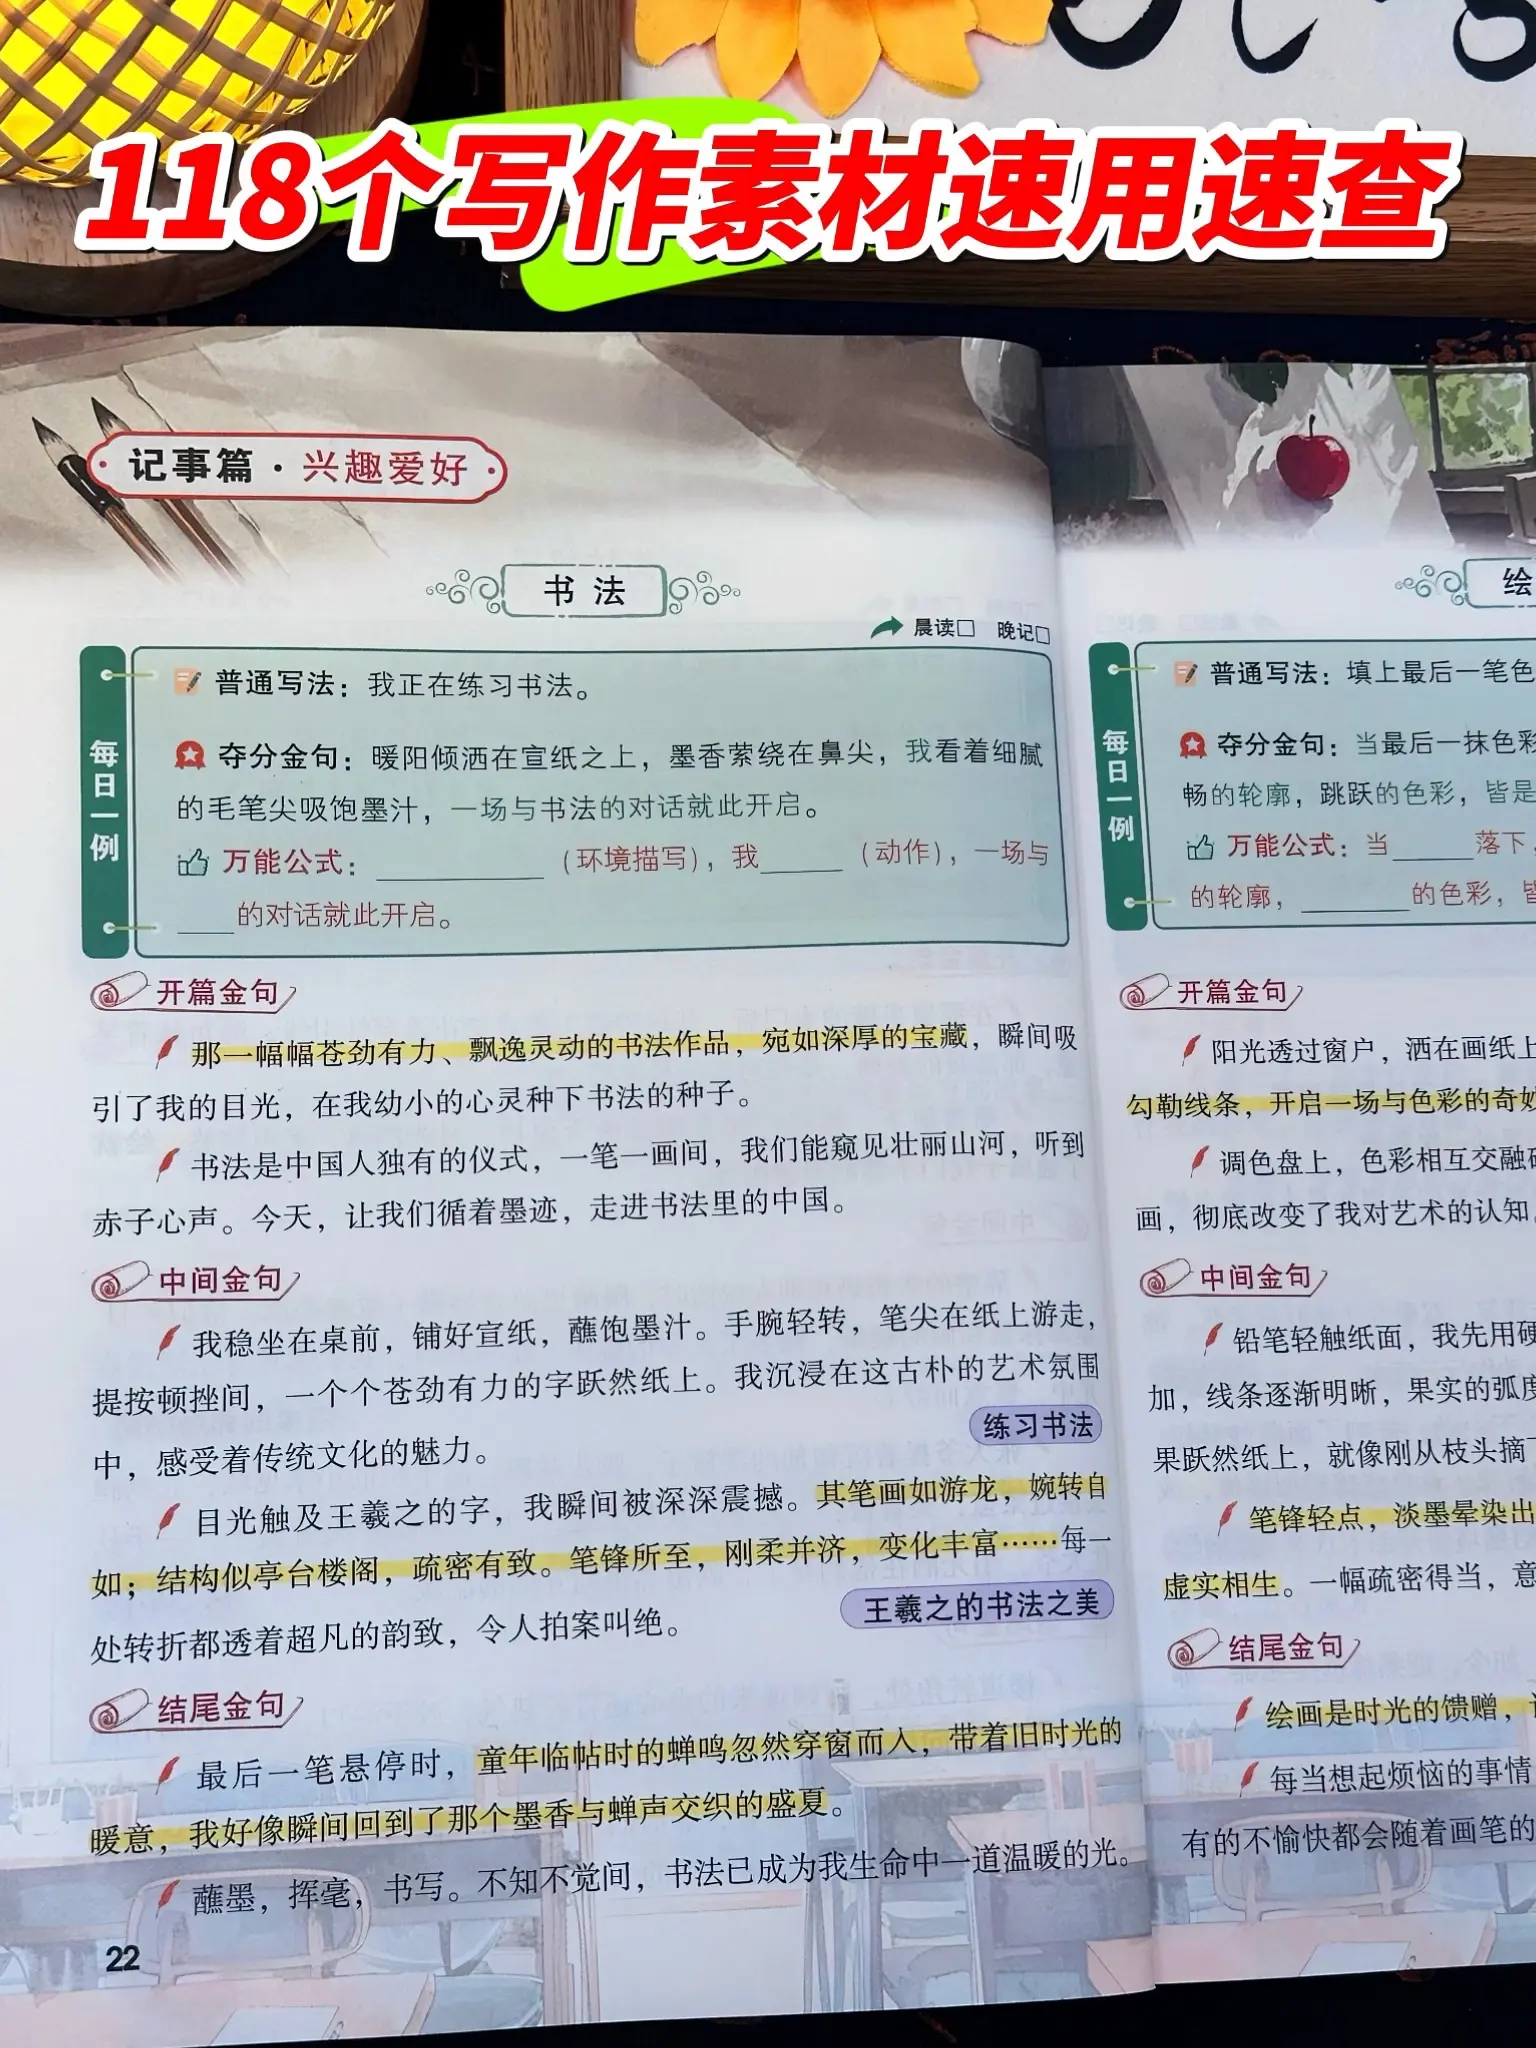 118个写作素材速用速查
记事篇·兴趣爱好
书法
晨读□ 晚记□
每日一例
普通写法：我正在练习书法。
夺分金句：暖阳倾洒在宣纸之上，墨香萦绕在鼻尖，我看着细腻
的毛笔尖吸饱墨汁，一场与书法的对话就此开启。
万能公式：__________（环境描写），我_____（动作），一场与
____的对话就此开启。
开篇金句
那一幅幅苍劲有力、飘逸灵动的书法作品，宛如深厚的宝藏，瞬间吸
引了我的目光，在我幼小的心灵种下书法的种子。
书法是中国人独有的仪式，一笔一画间，我们能窥见壮丽山河，听到
赤子心声。今天，让我们循着墨迹，走进书法里的中国。
中间金句
我稳坐在桌前，铺好宣纸，蘸饱墨汁。手腕轻转，笔尖在纸上游走，
提按顿挫间，一个个苍劲有力的字跃然纸上。我沉浸在这古朴的艺术氛围
中，感受着传统文化的魅力。
练习书法
目光触及王羲之的字，我瞬间被深深震撼。其笔画如游龙，婉转自
如；结构似亭台楼阁，疏密有致。笔锋所至，刚柔并济，变化丰富……每一
处转折都透着超凡的韵致，令人拍案叫绝。
王羲之的书法之美
结尾金句
最后一笔悬停时，童年临帖时的蝉鸣忽然穿窗而入，带着旧时光的
暖意，我好像瞬间回到了那个墨香与蝉声交织的盛夏。
蘸墨，挥毫，书写。不知不觉间，书法已成为我生命中一道温暖的光。
22
绘
每日一例
普通写法：填上最后一笔色
夺分金句：当最后一抹色彩
畅的轮廓，跳跃的色彩，皆是
万能公式：当_____落下，
的轮廓，______的色彩，皆
开篇金句
阳光透过窗户，洒在画纸上
勾勒线条，开启一场与色彩的奇妙
调色盘上，色彩相互交融
画，彻底改变了我对艺术的认知
中间金句
铅笔轻触纸面，我先用硬
加，线条逐渐明晰，果实的弧度
果跃然纸上，就像刚从枝头摘下
笔锋轻点，淡墨晕染出
虚实相生。一幅疏密得当，意
结尾金句
绘画是时光的馈赠，
每当想起烦恼的事情
有的不愉快都会随着画笔的